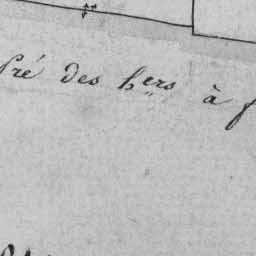 Pré des hers à